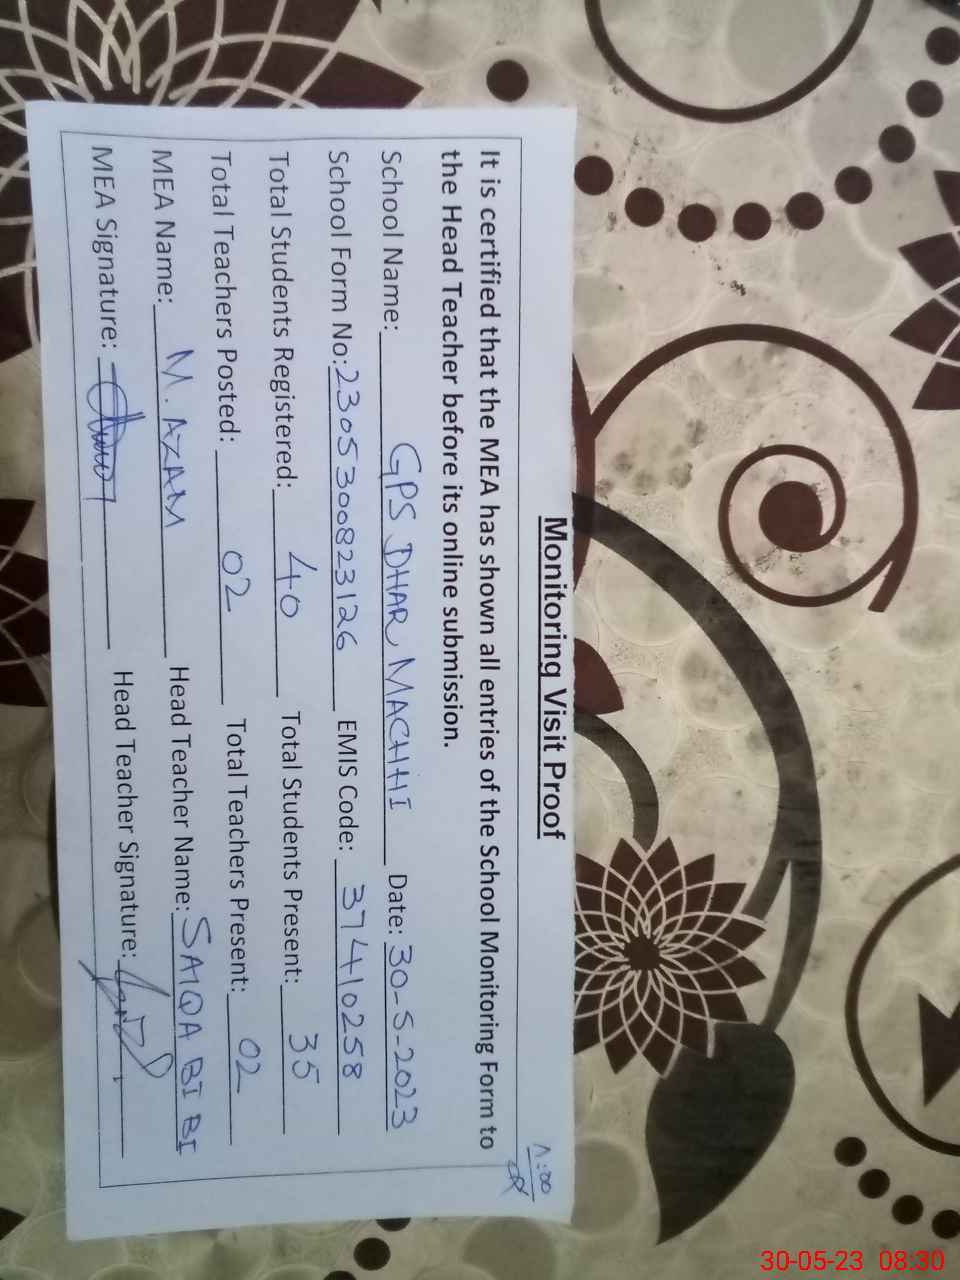 Monitoring Visit Proof
It is certified that the MEA has shown all entries of the School Monitoring Form to
the Head Teacher before its online submission.
School Name: GPS DHAR MACHHI Date: 30-5-2023
School Form No: 230530082 3126 EMIS Code: 37410258
Total Students Registered: 40 Total Students Present: 35
Total Teachers Posted: 02 Total Teachers Present: 02
MEA Name: M. AZAM Head Teacher Name: SAIQA BI BI
MEA Signature: Head Teacher Signature:
30-05-23 08:30